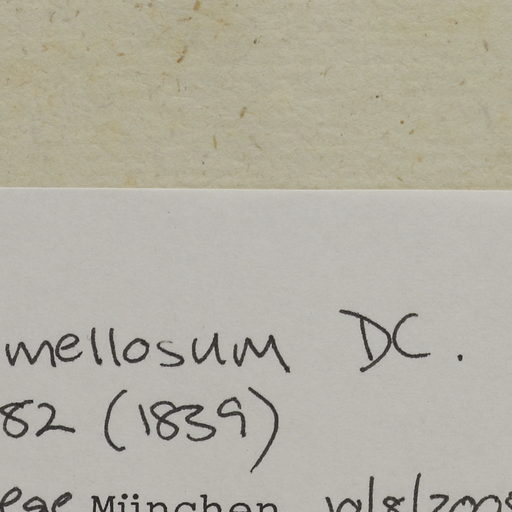 mellosum DC.
82 (1839)
ege München 10/8/2008